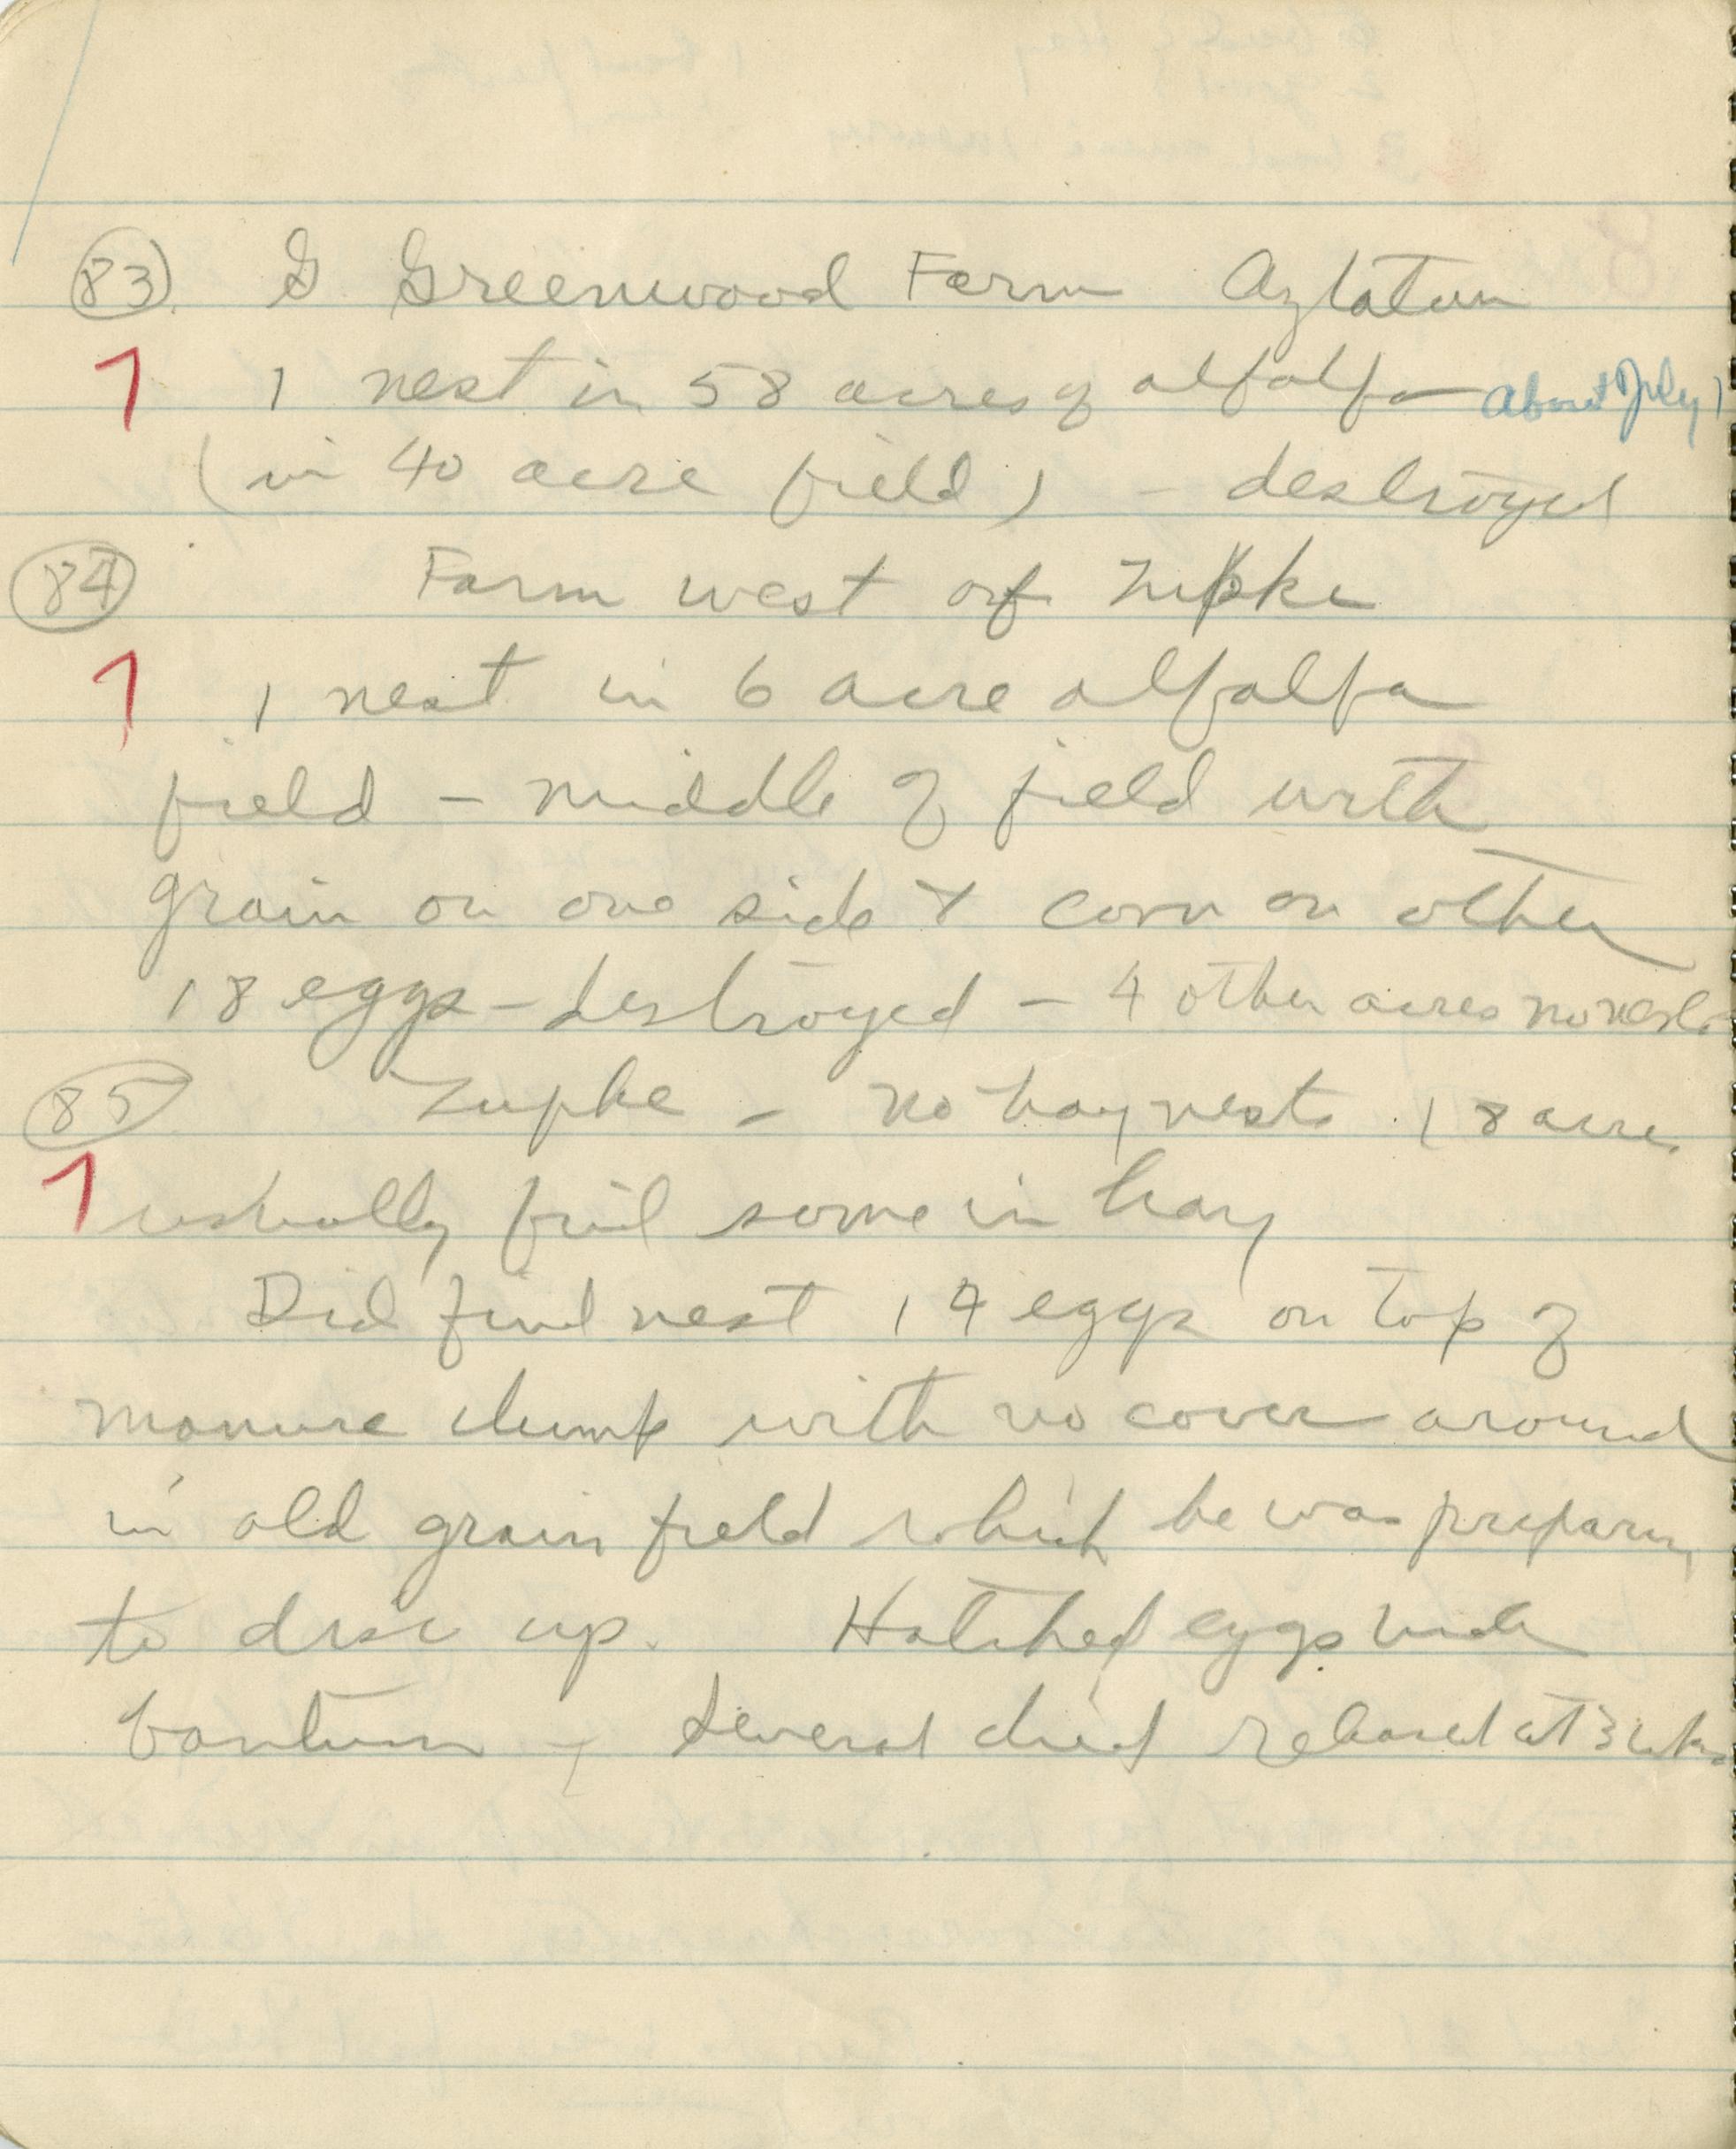 83. G Greenwood Farm Aztalan
1 1 nest in 58 acres of alfalfa about July 1
(in 40 acre field) - destroyed
84 Farm west of Zupke
1 1 nest in 6 acre alfalfa
field - middle of field with
grain on one side & corn on other
18 eggs - destroyed - 4 other acres no nests
85 Zupke - no hay nests 18 acre
1 ushually find some in hay
Did find nest 14 eggs on top of
manure dump with no cover around
in old grain field which he was preparing
to disc up. Hatched eggs under
bantum - Several died released at 3 wks